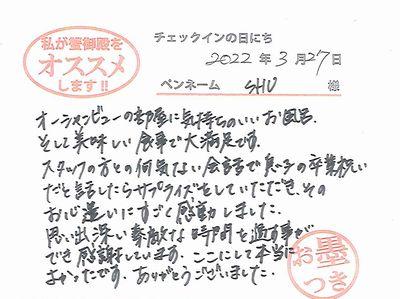 私が蟹御殿を
オススメ
します!!
チェックインの日にち
2022年3月27日
ペンネーム SHU 様
オーシャンビューの部屋に気持ちのいいお風呂、
そして美味しい食事で大満足です。
スタッフの方との何気ない会話で息子の卒業祝い
だと話したらサプライズをしていただき、その
お心遣いにすごく感動しました。
思い出深い素敵な時間を過す事が
でき感謝しています。ここにして本当に
よかったです。ありがとうございました。
お墨
つき